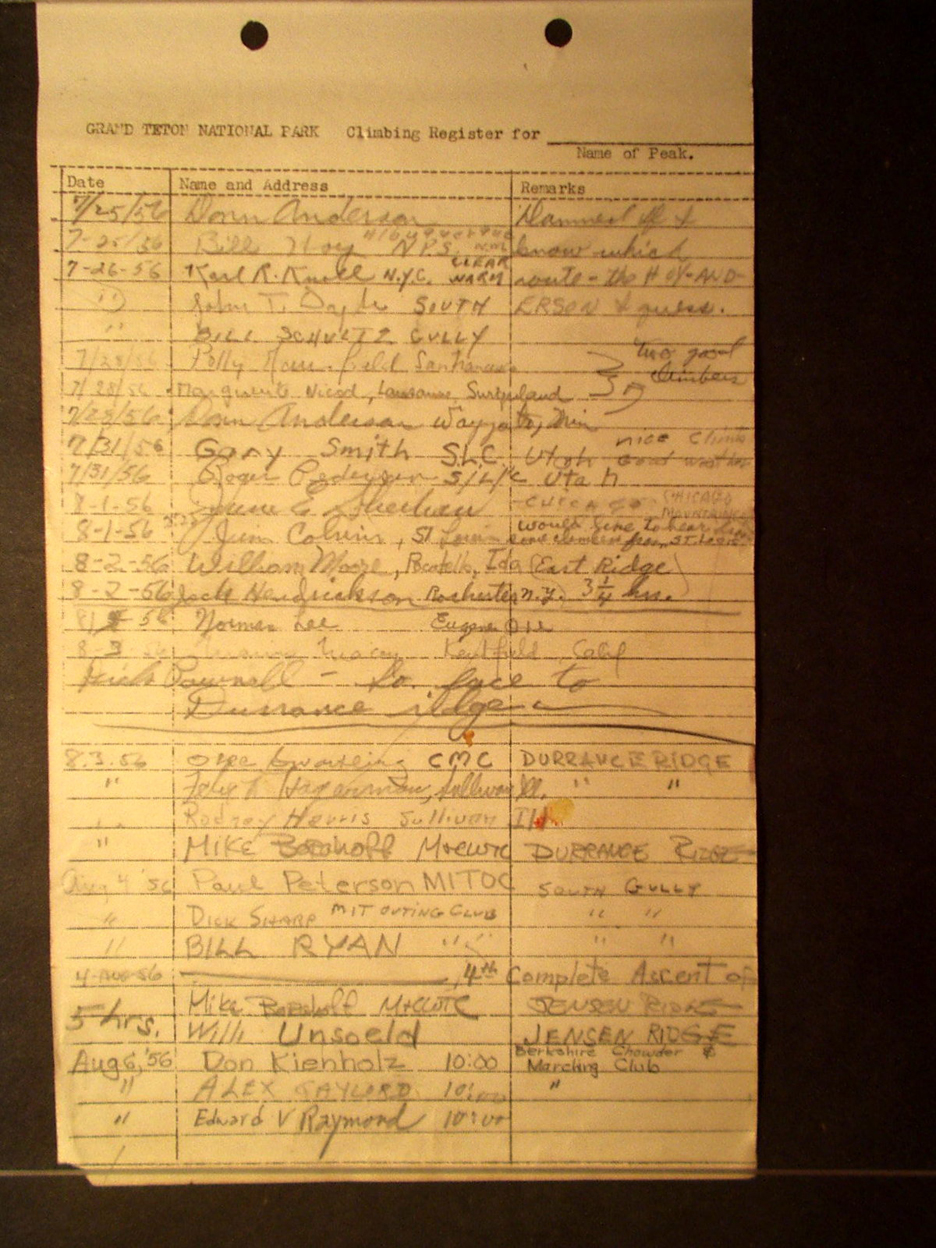 GRAND TETON NATIONAL PARK Climbing Register for
Name of Peak.
Date Name and Address Remarks
7/25/56 Donn Anderson Damned if I
7-25/56 Bill Hoy N.P.S. Albuquerque N.M. know which
7-26-56 Karl R. Knoll N.Y.C. CLEAR WARM route - the HOY-AND
" John T. SOUTH ERSON I guess.
" BILL SCHULTZ GULLY
7/28/56 Polly two good
7/28/56 Marguerite Nicod, Lausanne, Switzerland climbers
7/28/56 Donn Anderson Wayzata, Minn
7/31/56 Gary Smith S.L.C. Utah nice climb good weather
7/31/56 Roger S/L/C Utah
8-1-56 E CHICAGO MOUNTAINEERS
8-1-56 Jim Colvin, St Louis would like to hear from some climbers from ST. Louis
8-2-56 William Moore, Pocatello, Ida (East Ridge)
8-2-56 Jack Hendrickson Rochester N.Y. 3 1/4 hrs.
56 Norman Lee Eugene Ore
8-3 Kentfield, Calif
Dick Pownall - So. face to
Durrance ridge
8.3.56 CMC DURRANCE RIDGE
" Hagerman, Sullivan Ill. " "
Rodney Harris Sullivan Ill
" MIKE Borghoff M+CWTC DURRANCE RIDGE
Aug 4 '56 Paul Peterson MITOC SOUTH GULLY
" DICK SHARP MIT OUTING CLUB " "
" BILL RYAN " " " "
4-AUG-56 4th Complete Ascent of
Mike Borghoff M+CWTC JENSEN RIDGE
5 hrs. Willi Unsoeld JENSEN RIDGE
Aug 6, '56 Don Kienholz 10:00 Berkshire Chowder & Marching Club
" ALEX GAYLORD 10:00 "
" Edward V Raymond 10:00